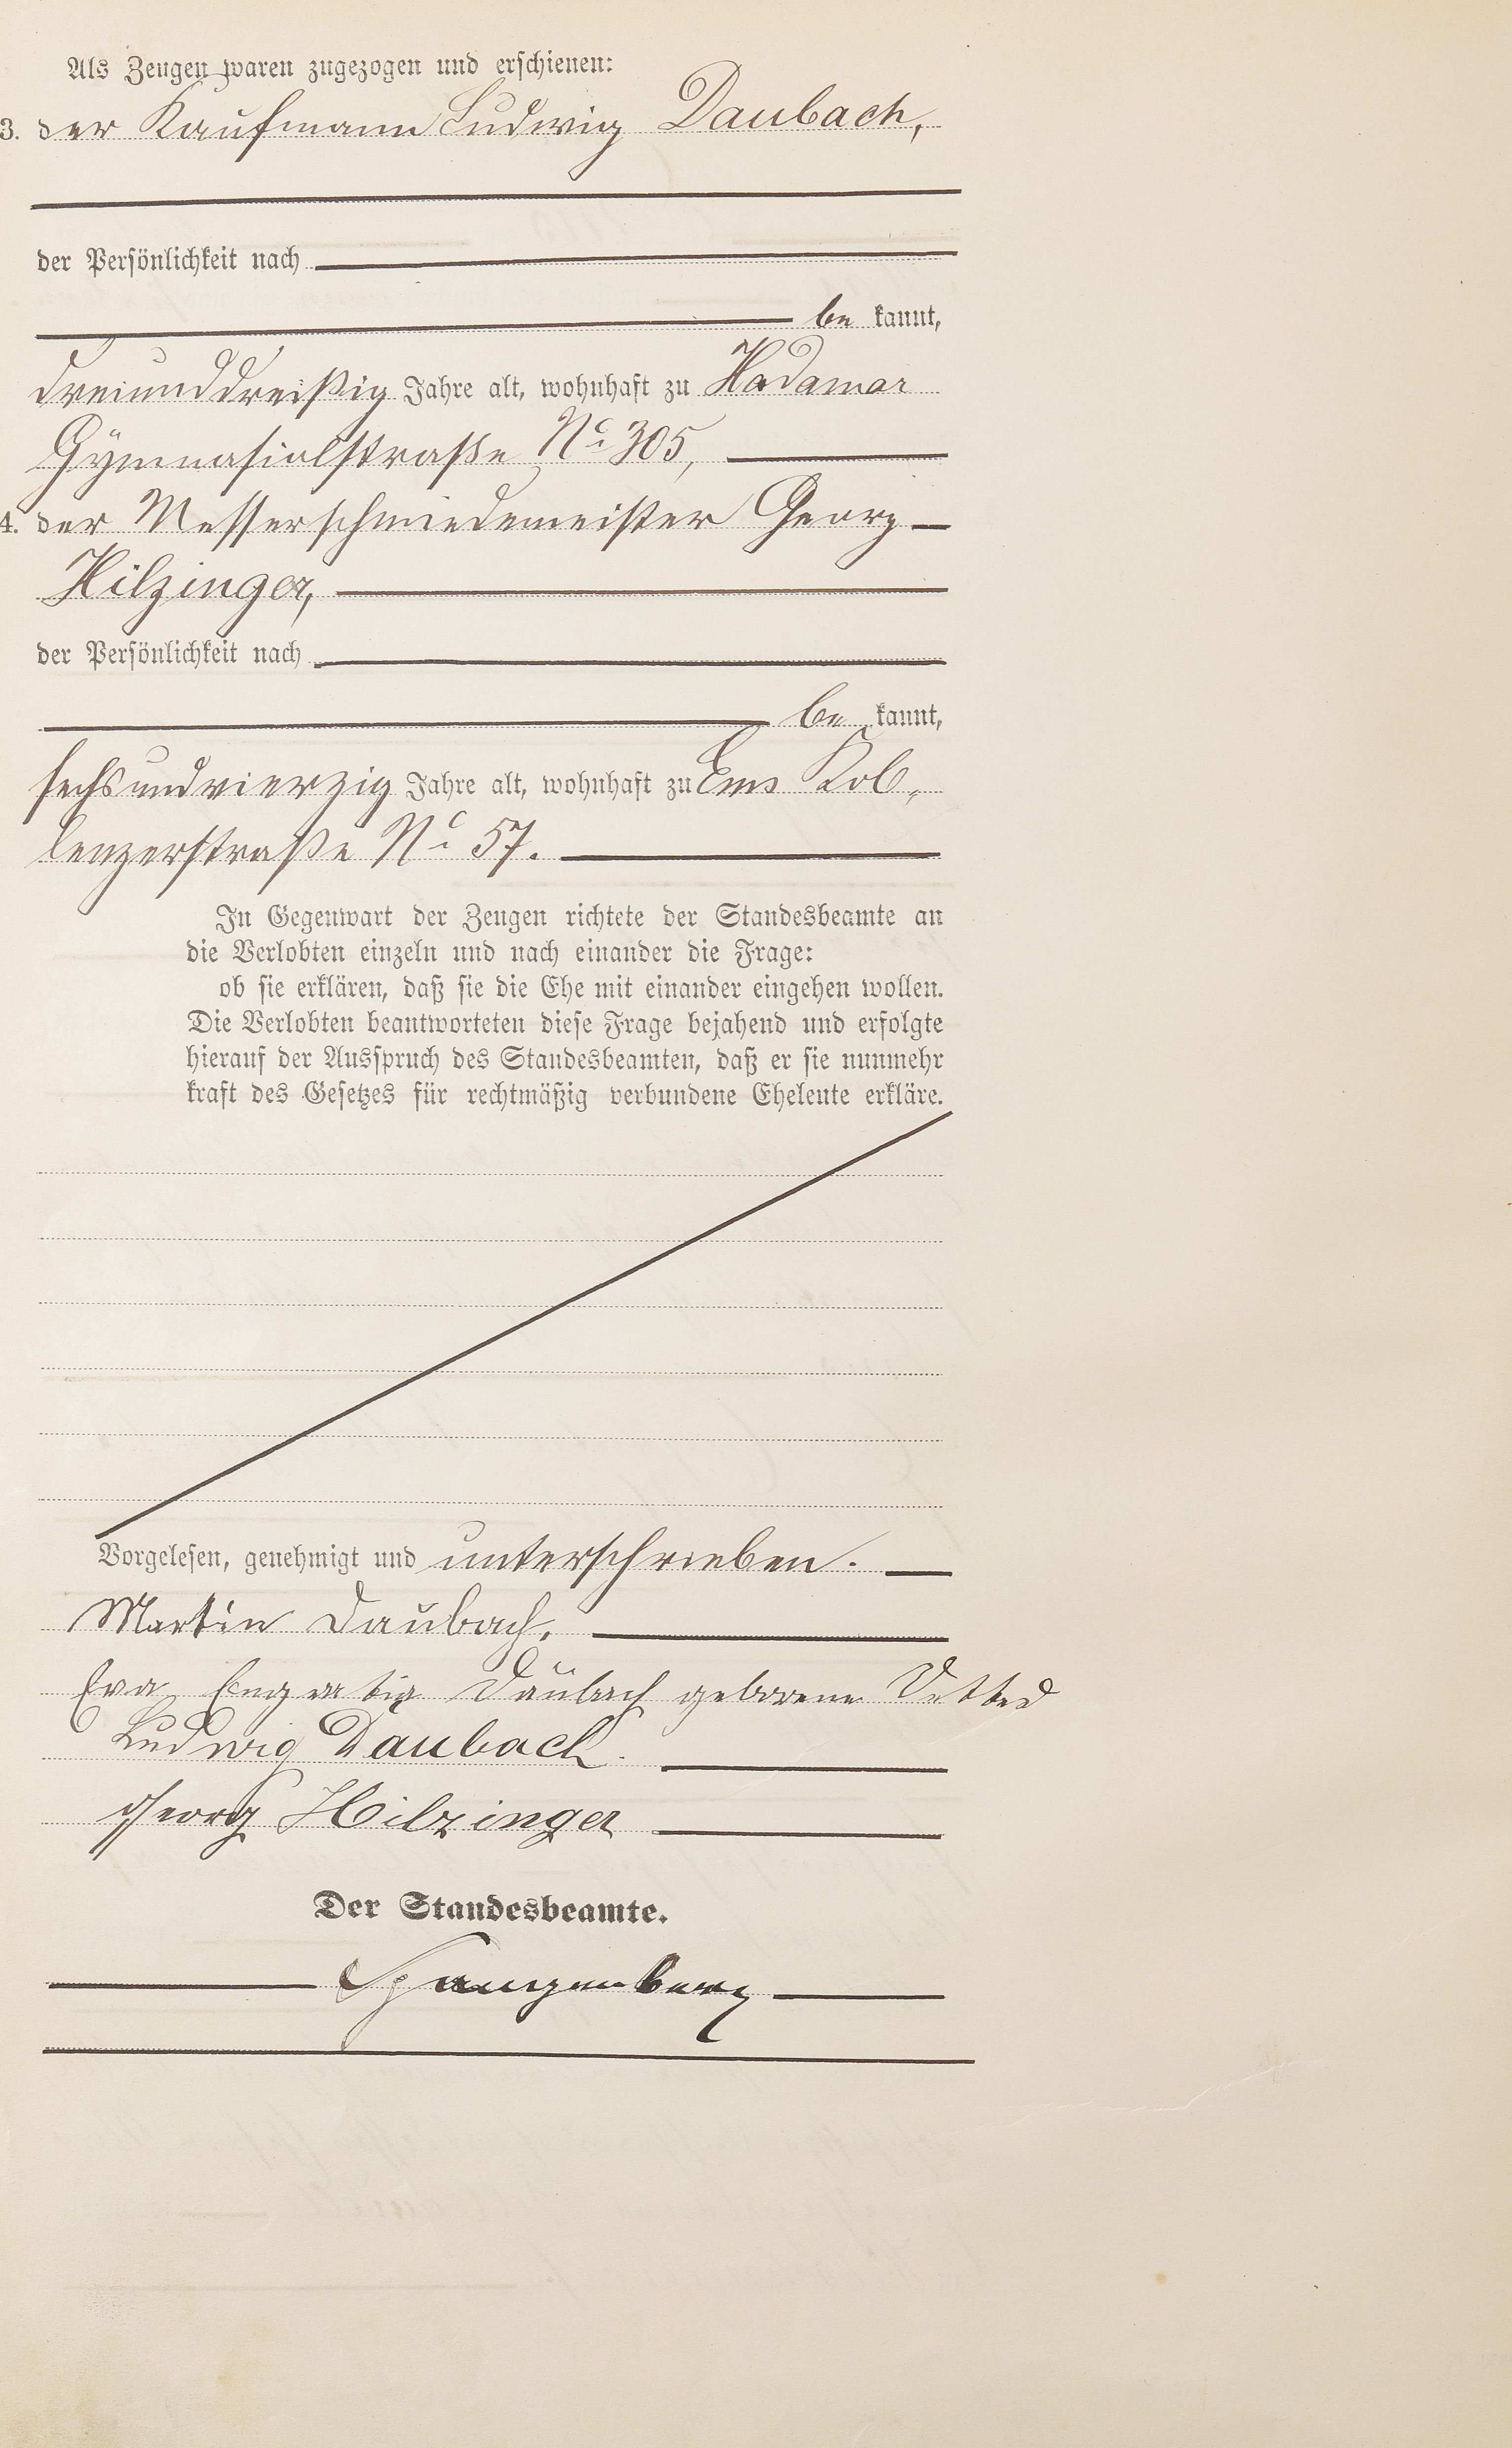 Als Zeugen waren zugezogen und erschienen:
3. der Kaufmann Ludwig Daubach,
der Persönlichkeit nach
be kannt,
dreiunddreißig Jahre alt, wohnhaft zu Hadamar
Gymnasialstraße No 305,
4. der Messerschmiedemeister Georg
Hilzinger,
der Persönlichkeit nach
be kannt,
sechsundvierzig Jahre alt, wohnhaft zu Ems Kob„
lenzerstraße No 57.
In Gegenwart der Zeugen richtete der Standesbeamte an
die Verlobten einzeln und nach einander die Frage:
ob sie erklären, daß sie die Ehe mit einander eingehen wollen.
Die Verlobten beantworteten diese Frage bejahend und erfolgte
hierauf der Ausspruch des Standesbeamten, daß er sie nunmehr
kraft des Gesetzes für rechtmäßig verbundene Eheleute erkläre.
Vorgelesen, genehmigt und unterschrieben.
Martin Daubach.
Eva Daubach geborene
Ludwig Daubach.
Georg Hilzinger
Der Standesbeamte.
Spangenberg